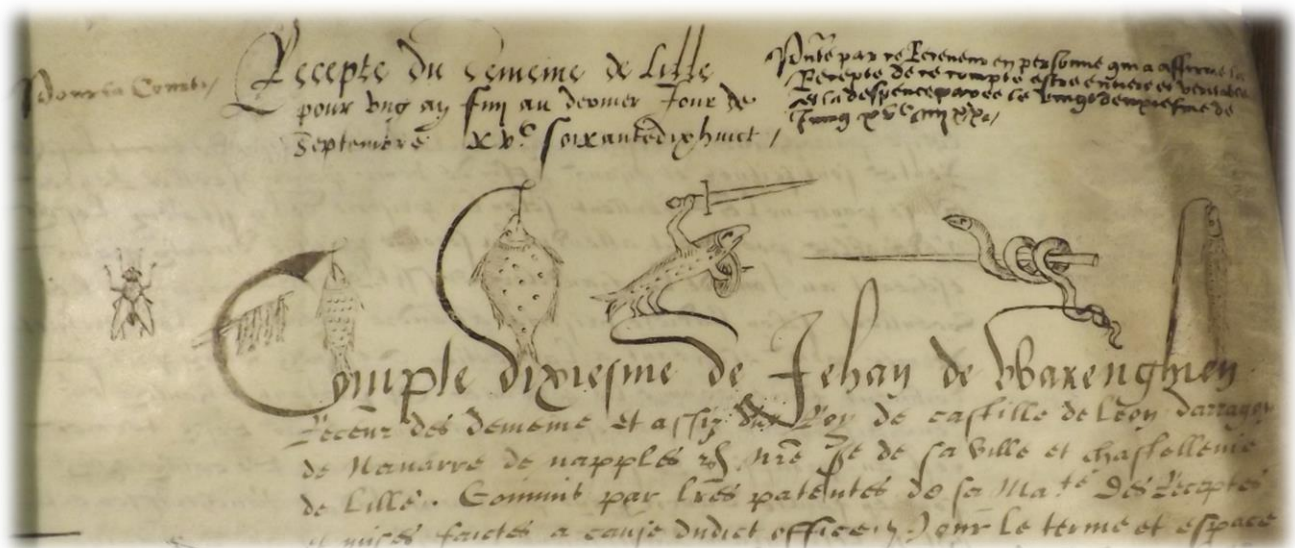 pour la Court
Recepte du demeine de Lille
pour ung an finy au dernier Jour de
Septembre xvc soixantedixhuict
par ce Receveur en personne qui a afferme la
Recepte de ce compte estre entiere et veritable
et la despence payee le vingtdeuxiesme de
Compte dixiesme de Jehan de Warenghien
Receur des demeine et assiz du Roy de Castille de Leon darragon
de Navarre de napples nre Sr de sa ville et chastellenie
de Lille. Commis par lres patentes de sa Mate Des Receptes
et mises faictes a cause dudict office pour le terme et espace